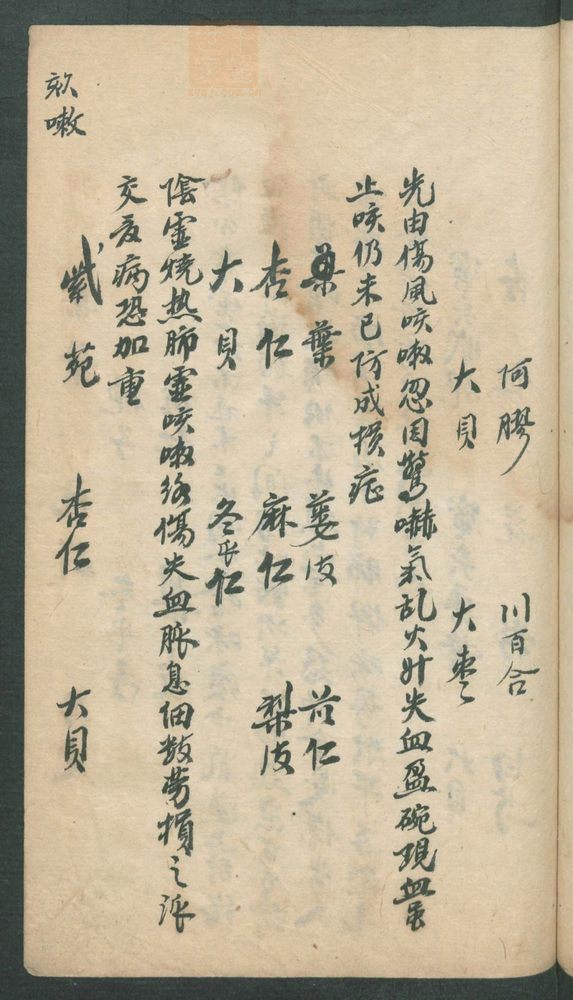 阿膠 川百合
大貝 大枣
先由傷風咳嗽忽因驚嚇氣乱火升失血盈碗現血虽
止咳仍未已防成損症
桑葉 蒌皮 苡仁
杏仁 麻仁 梨皮
大貝 冬瓜仁
陰虚燒热肺虚咳嗽络傷失血脉息细数劳損之派
交夏病恐加重
紫苑 杏仁 大貝
欬嗽